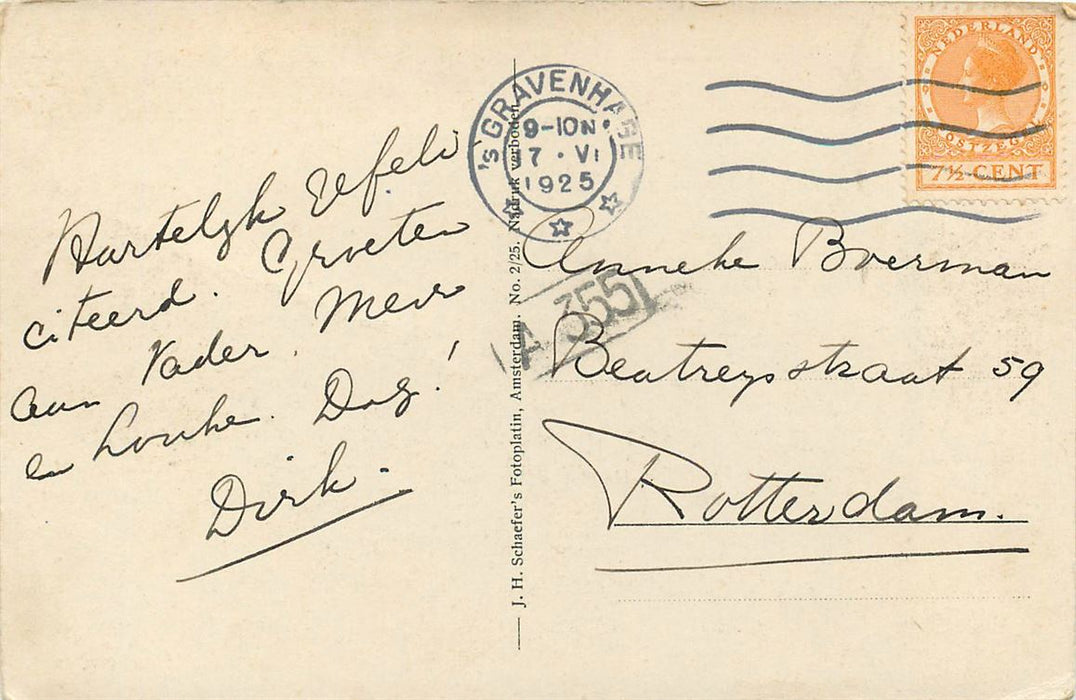 Hartelijk gefeli
citeerd. Groeten
aan Vader. Moeder
en Louke. Dag!
Dirk.
J. H. Schaefer's Fotoplatin, Amsterdam. No. 2/25. Nadruk verboden.
'sGRAVENHAGE
9-10N
17 · VI
1925
NEDERLAND
POSTZEGEL
7½ CENT
A 355
Anneke Boerman
Beatrijsstraat 59
Rotterdam.